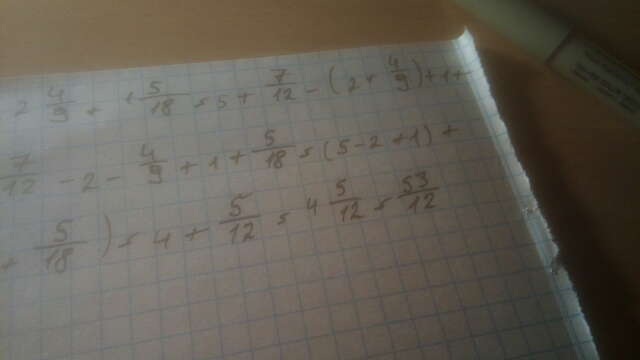 2 4/9 + 1 5/18 = 5 + 7/12 - (2 + 4/9) + 1 +
7/12 - 2 - 4/9 + 1 + 5/18 = (5 - 2 + 1) +
+ 5/18) = 4 + 5/12 = 4 5/12 = 53/12